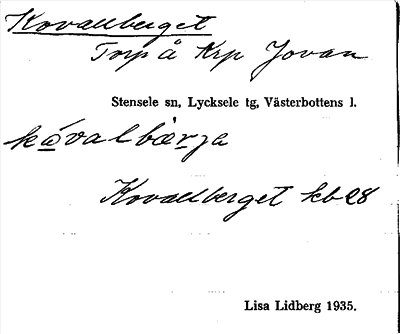 Kovallberget
Torp å Krp Jovan
Stensele sn, Lycksele tg, Västerbottens l.
kåvalbærja
Kovallberget kb 28
Lisa Lidberg 1935.